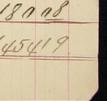 18008
45419